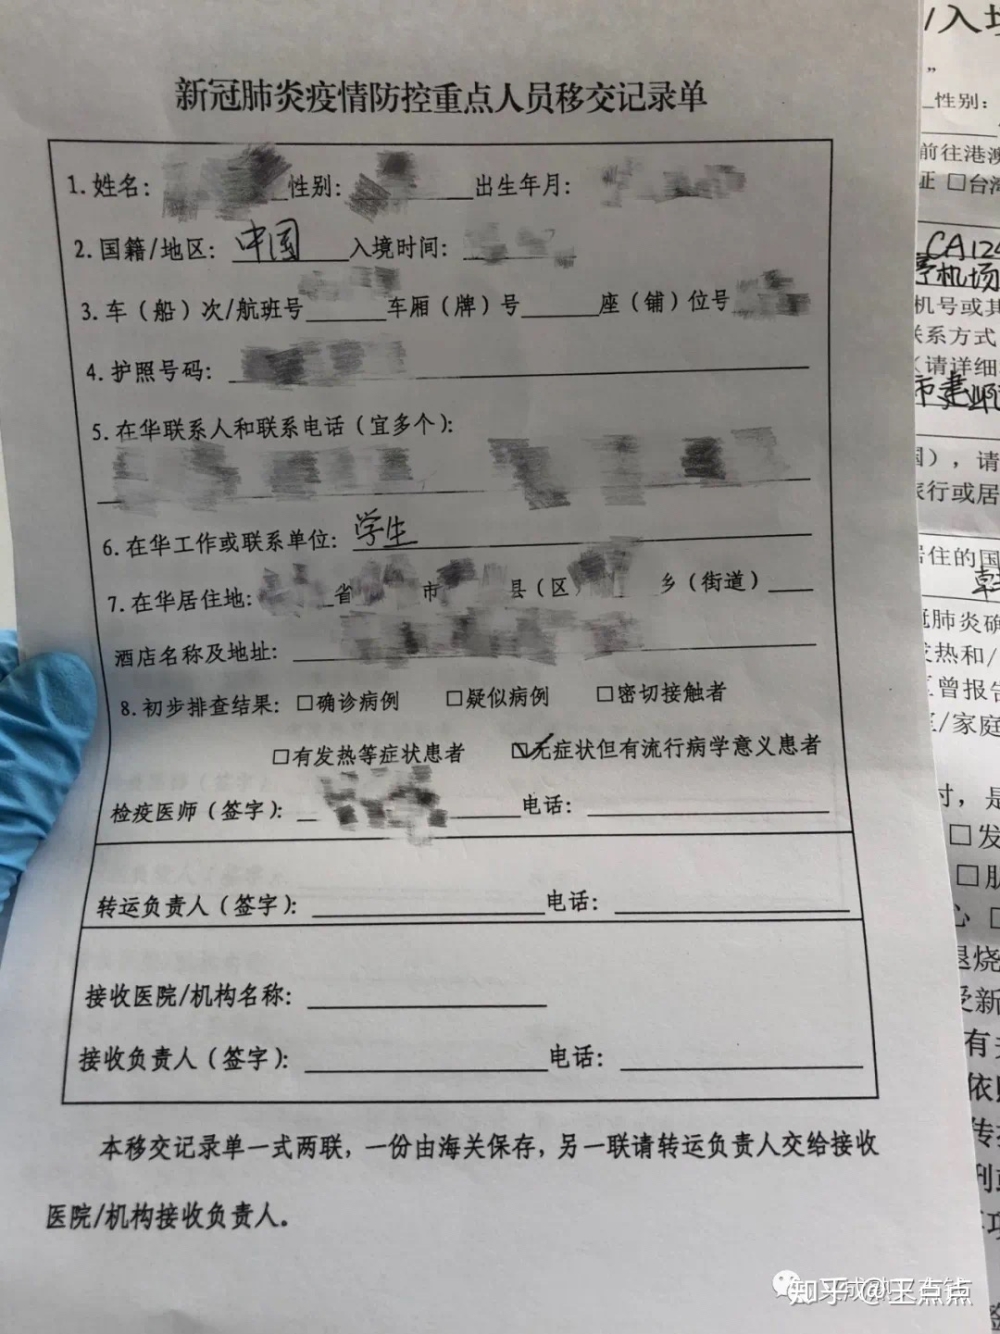 新冠肺炎疫情防控重点人员移交记录单
1.姓名: 性别: 出生年月:
2.国籍/地区: 中国 入境时间:
3.车（船）次/航班号 车厢（牌）号 座（铺）位号
4.护照号码:
5.在华联系人和联系电话（宜多个）:
6.在华工作或联系单位: 学生
7.在华居住地: 省 市 县（区） 乡（街道）
酒店名称及地址:
8.初步排查结果: □确诊病例 □疑似病例 □密切接触者
□有发热等症状患者 ☑无症状但有流行病学意义患者
检疫医师（签字）: 电话:
转运负责人（签字）: 电话:
接收医院/机构名称:
接收负责人（签字）: 电话:
本移交记录单一式两联，一份由海关保存，另一联请转运负责人交给接收
医院/机构接收负责人。
/入境
”
性别:
前往港澳
证 □台湾
CA124
机场
机号或其
联系方式
（请详细
市建
国），请
旅行或居
居住的国
冠肺炎确
发热和/
曾报告
/家庭
时，是
□发
□
心 □
退烧
受新
有关
依
传
知乎 @王点点